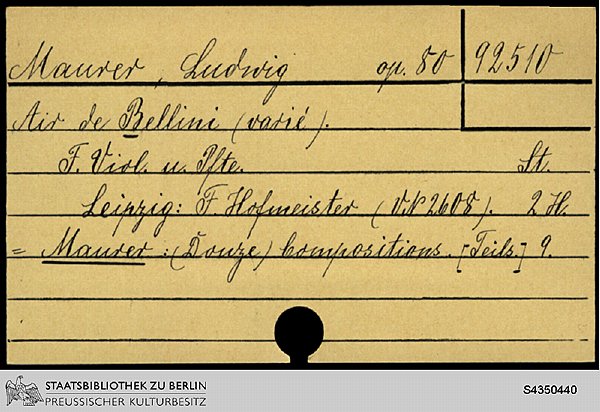 Maurer, Ludwig op. 80 92510
Air de Bellini (varié).
F. Viol. u. Pfte. St.
Leipzig: F. Hofmeister (V.N 2608). 2 H.
= Maurer: (Douze) Compositions. [Teils.] 9.
STAATSBIBLIOTHEK ZU BERLIN
PREUSSISCHER KULTURBESITZ
S4350440